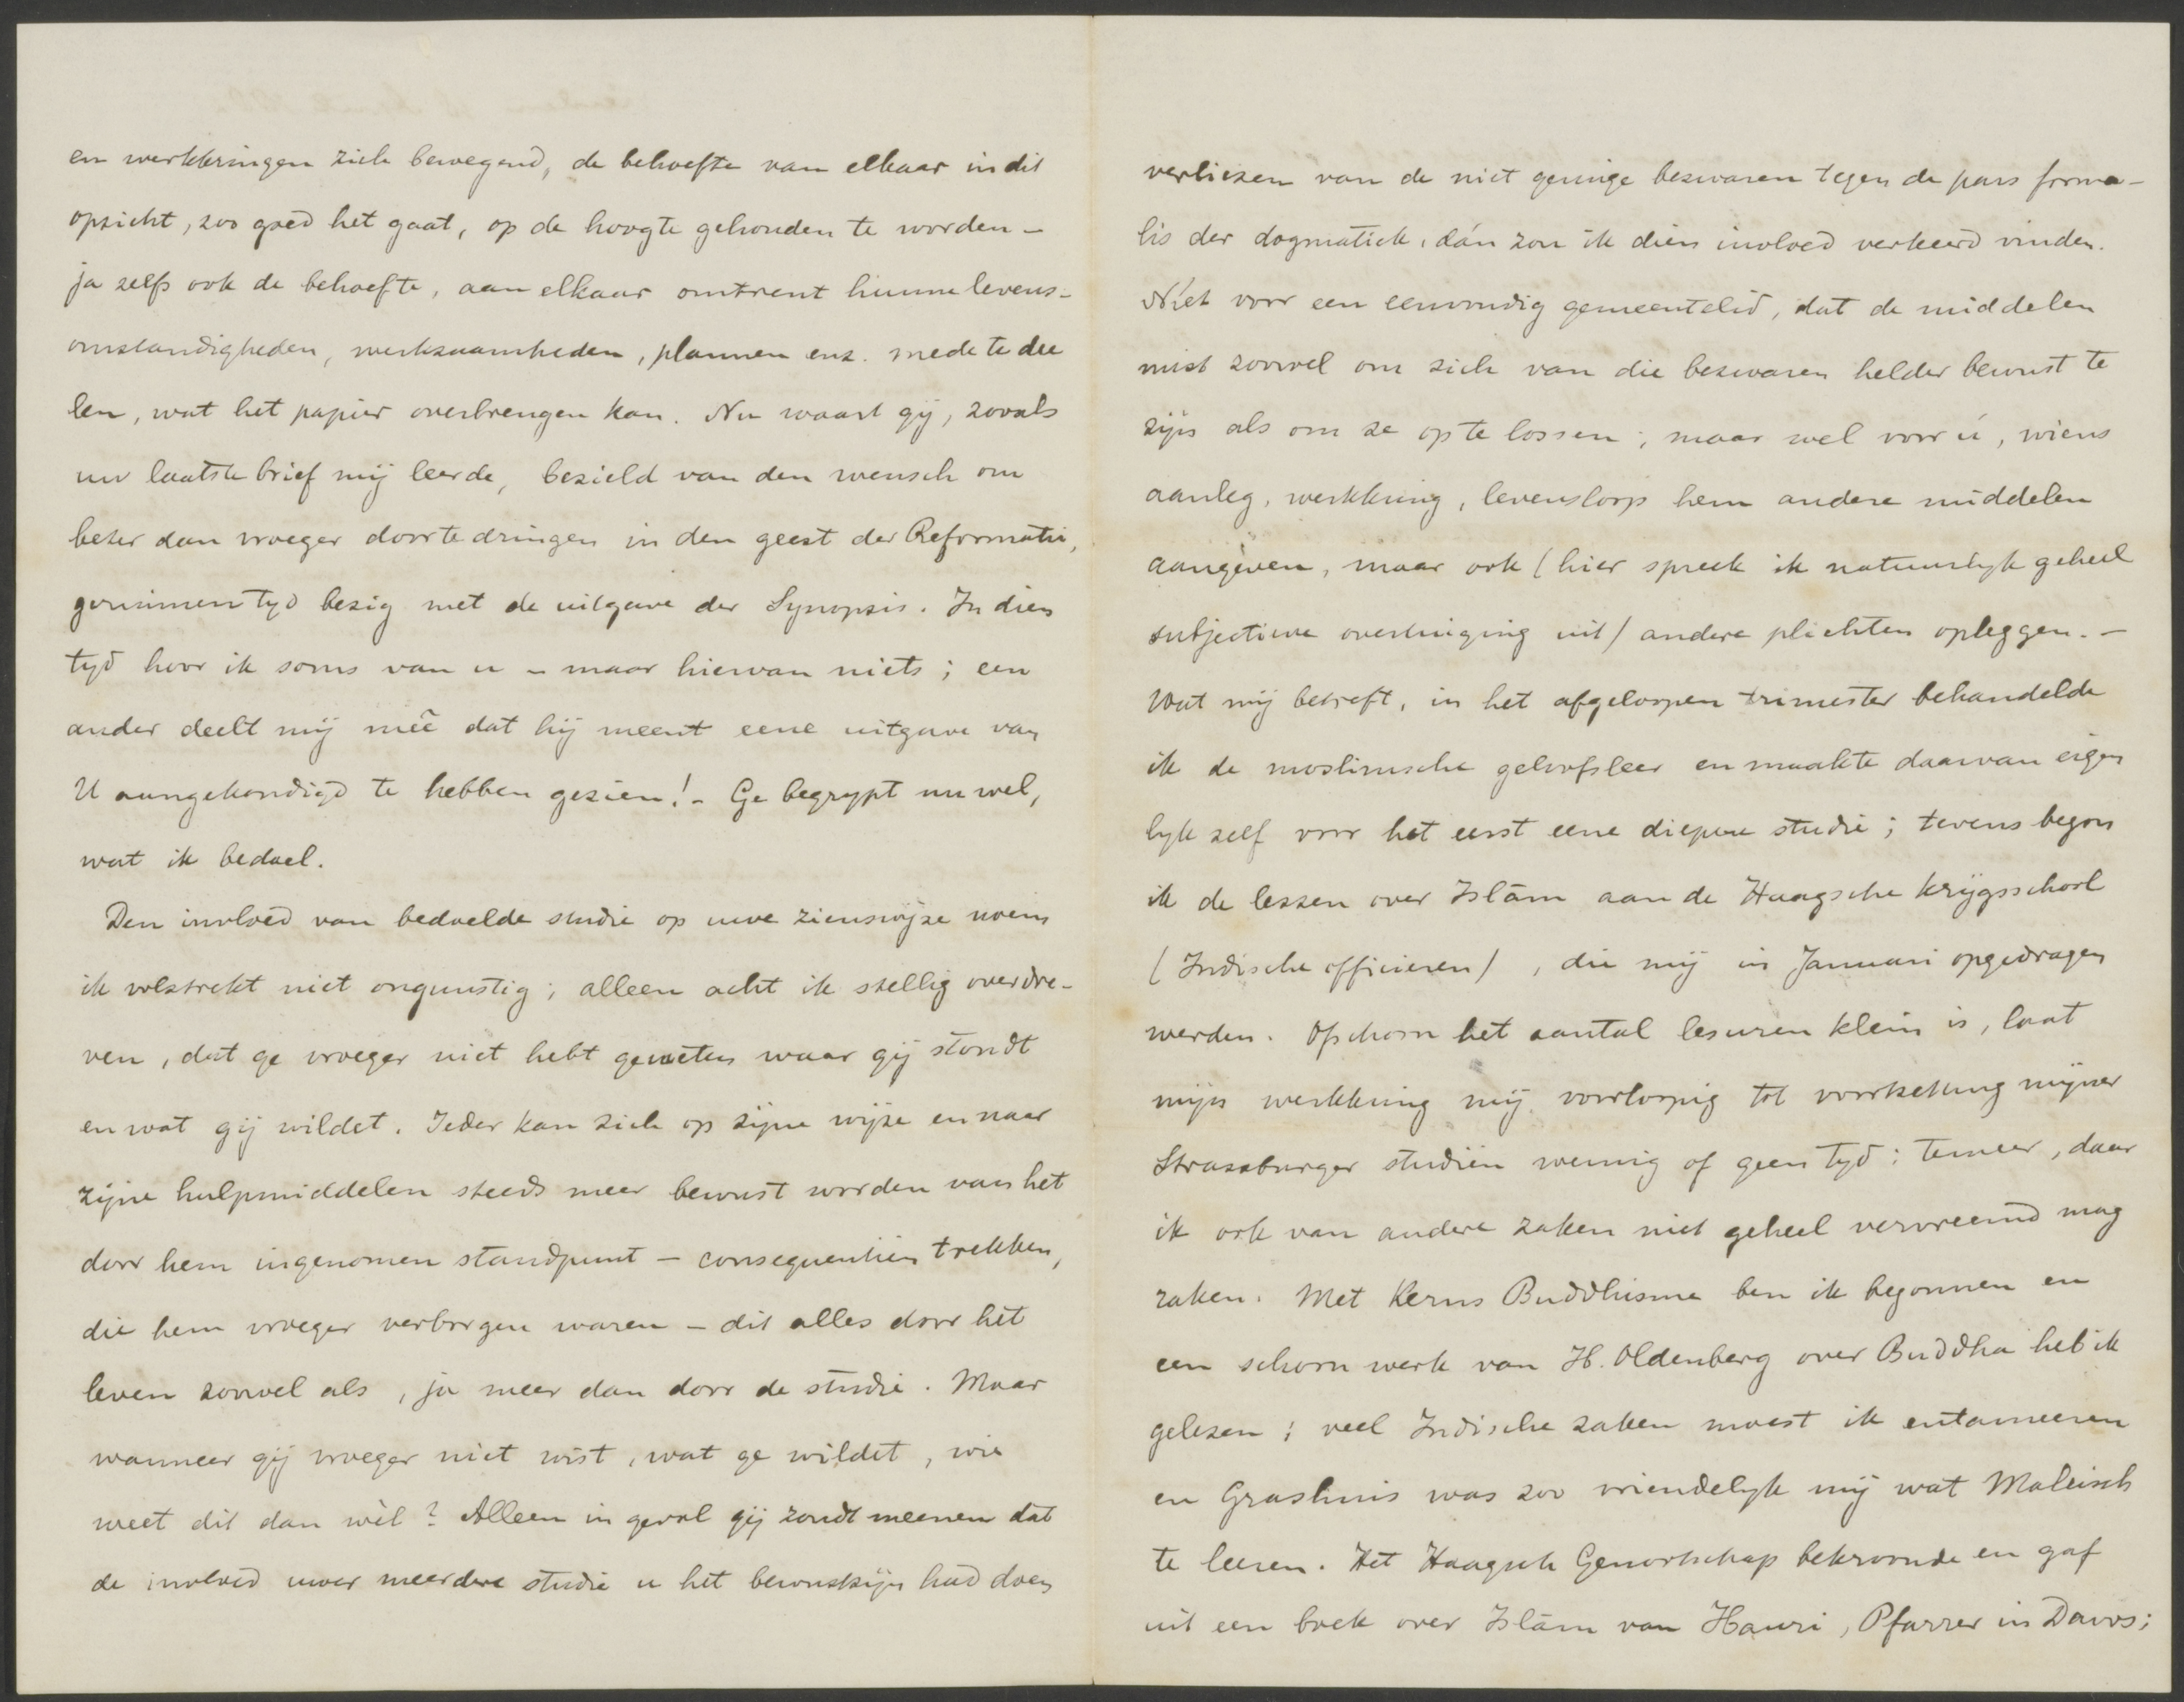 en werkkringen zich bewegend, de behoefte van elkaar in dit
opzicht, zoo goed het gaat, op de hoogte gehouden te worden –
ja zelfs ook de behoefte, aan elkaar omtrent hunne levens-
omstandigheden, werkzaamheden, plannen enz. mede te dee
len, wat het papier overbrengen kan. Nu waart gij, zooals
uw laatste brief mij leerde, bezield van den wensch om
beter dan vroeger door te dringen in den geest der Reformatie,
geruimen tyd bezig met de uitgave der Synopsis. In dien
tyd hoor ik soms van u – maar hiervan niets; een
ander deelt mij meê dat hij meent eene uitgave van
U aangekondigd te hebben gezien! – Ge begrypt nu wel,
wat ik bedoel.
Den invloed van bedoelde studie op uwe zienswijze noem
ik volstrekt niet ongunstig; alleen acht ik stellig overdre-
ven, dat ge vroeger niet hebt geweten waar gij stondt
en wat gij wildet. Ieder kan zich op zijne wijze en naar
zijne hulpmiddelen steeds meer bewust worden van het
door hem ingenomen standpunt – consequentien trekken,
die hem vroeger verborgen waren – dit alles door het
leven zoowel als, ja meer dan door de studie. Maar
wanneer gij vroeger niet wist, wat ge wildet, wie
weet dit dan wèl? Alleen in geval gij zoudt meenen dat
de invloed uwer meerdere studie u het bewustzijn had doen
verliezen van de niet geringe bezwaren tegen de pars forma-
lis der dogmatiek, dán zou ik dien invloed verkeerd vinden.
Niet voor een eenvoudig gemeentelid, dat de middelen
mist zoowel om zich van die bezwaren helder bewust te
zijn als om ze op te lossen; maar wel voor ú, wiens
aanleg, werkkring, levensloop hem andere middelen
aangeven, maar ook (hier spreek ik natuurlyk geheel
subjectieve overtuiging uit) andere plichten opleggen. –
Wat mij betreft, in het afgeloopen trimester behandelde
ik de moslimsche geloofsleer en maakte daarvan eigen
lyk zelf voor het eerst eene diepere studie; tevens begon
ik de lessen over Islâm aan de Haagsche krijgsschool
(Indische officieren), die mij in Januari opgedragen
werden. Ofschoon het aantal lesuren klein is, laat
mijn werkkring mij voorloopig tot voortzetting mijner
Strassburger studiën weinig of geen tyd: temeer, daar
ik ook van andere zaken niet geheel vervreemd mag
raken. Met Kerns Buddhisme ben ik begonnen en
een schoon werk van H. Oldenberg over Buddha heb ik
gelezen; veel Indische zaken moest ik entameeren
en Grashuis was zoo vriendelyk mij wat Maleisch
te leeren. Het Haagsch Genootschap bekroonde en gaf
uit een boek over Islâm van Hauri, Pfarrer in Davos;